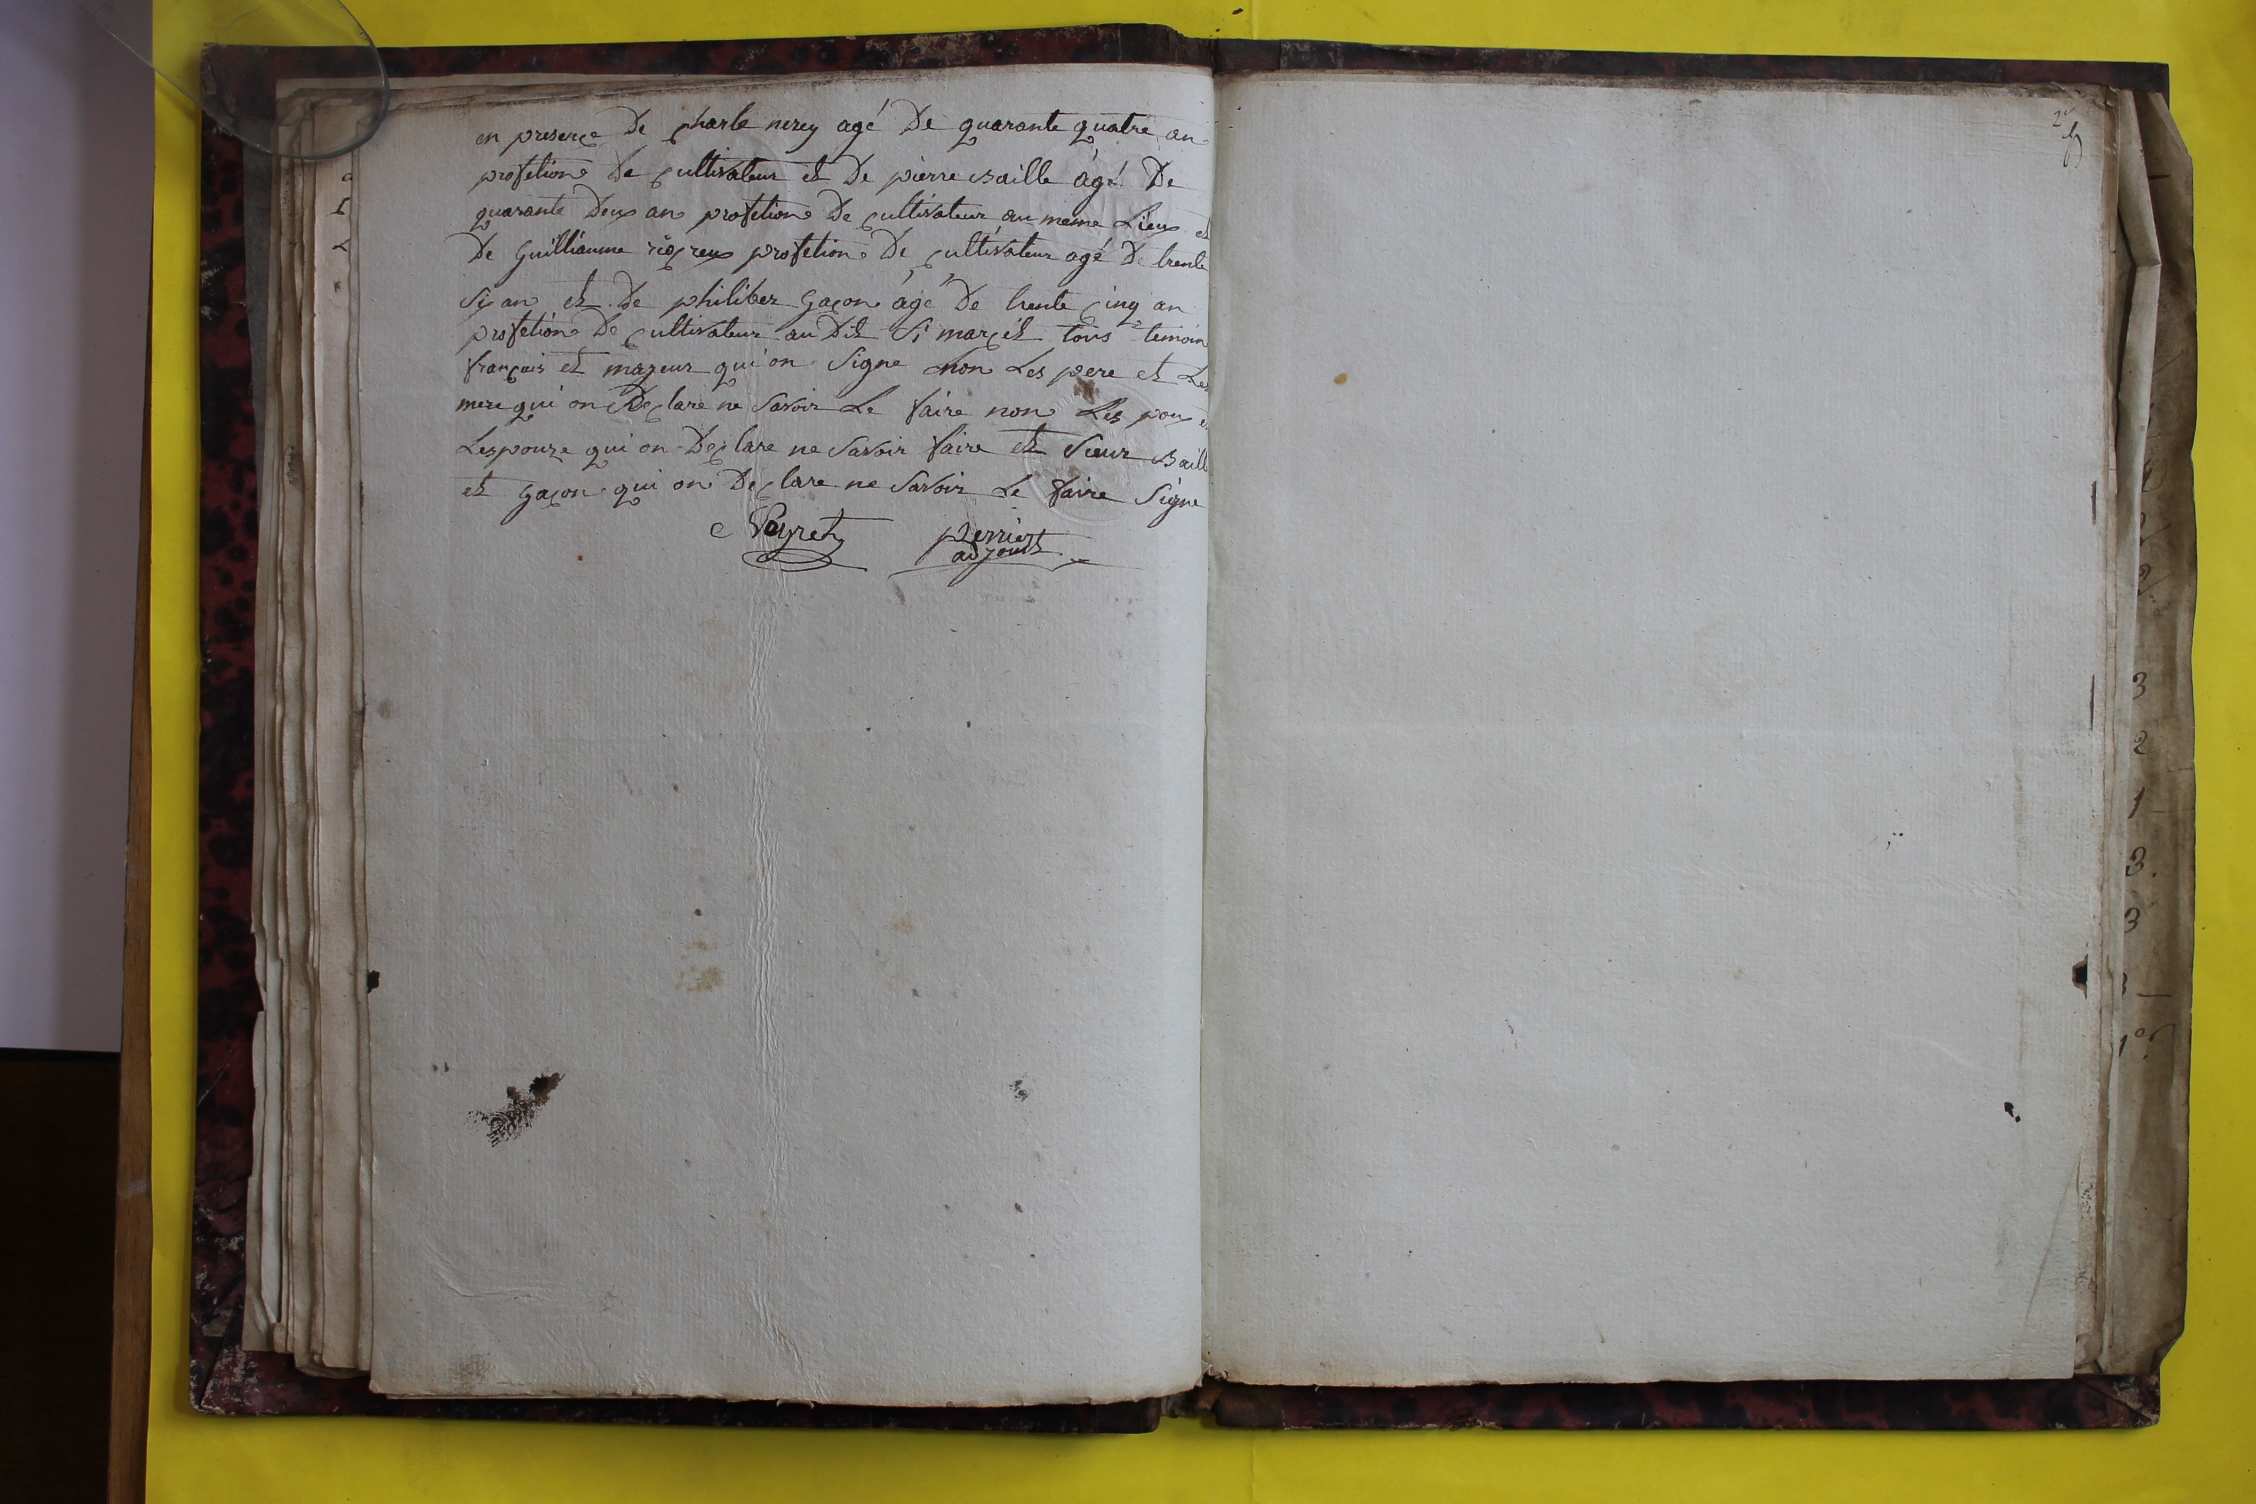 en presence De charle nerey agé De quarante quatre an
profetion De cultivateur et De pierre Baille agé De
quarante Deux an profetion De cultivateur au meme Lieux et
De Guilliaume profetion De cultivateur agé De trente
Si an et De philiber Gaçon agé De trente cinq an
profetion De cultivateur au Dit St marcel tous temoin
français et mageur qui on Signe non Les pere et Les
mere qui on Declare ne Savoir Le faire non Les poux et
Lespouze qui on Declare ne Savoir faire et Sieur Baill
et Gaçon qui on Declare ne Savoir Le faire Signe
Neyret Perrier
adjoint
3
2
1
3.
3